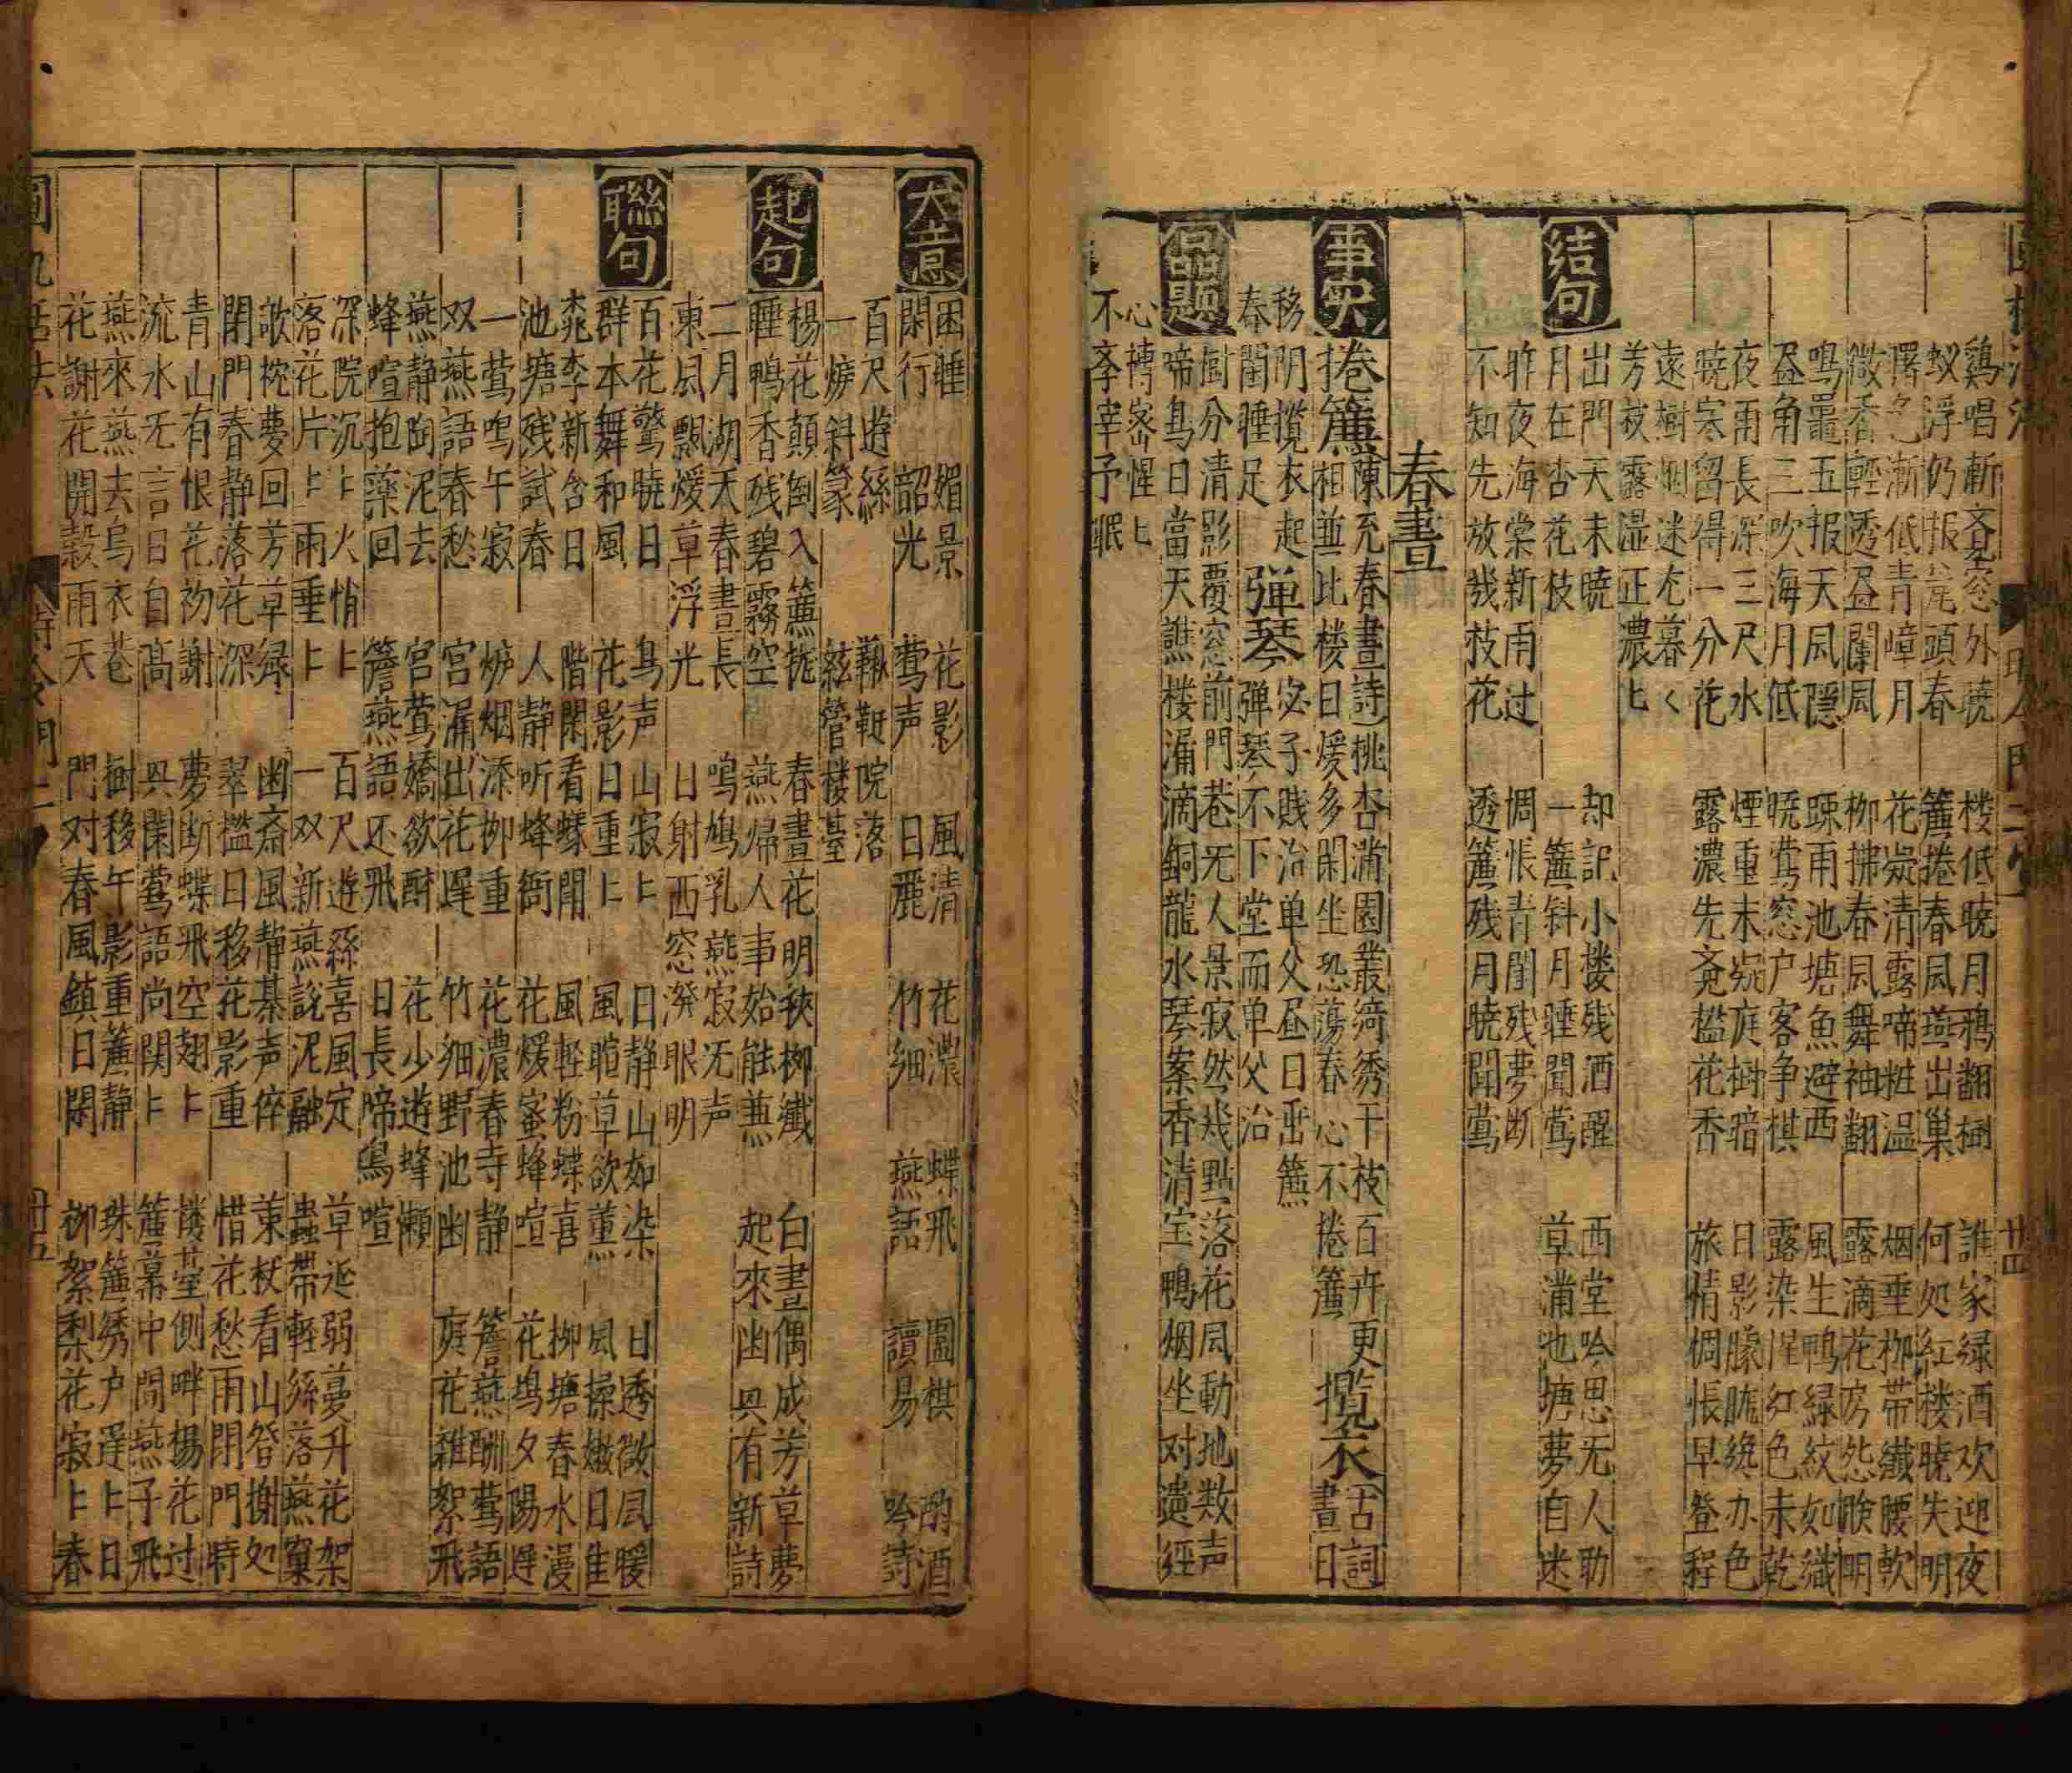 鷄唱漸 窓外暁 楼低暁月鴉翻樹 誰家緑酒欢迎夜
蚁浮仍报瓮頭春 簾捲春凨燕出巢 何処紅楼暁失明
曙色漸低青嶂月 花凝清露啼粧温 烟垂柳帯纖腰軟
微香輕透昼闌凨 柳拂春凨舞袖翻 露滴花房怨臉明
鳴鼍五报天凨隠 踈雨池塘魚避西 風生鴨緑紋如織
昼角三吹海月低 暁鶯窓户客争棋 露染猩红色未乾
夜雨長深三尺水 煙重未窥庭樹暗 日影朦朧纔办色
暁寒留得一分花 露濃先覔檻花香 旅情惆悵早登程
遠樹烟迷尤暮く
芳枝露湿正濃ヒ
結句
出門天未暁 却記小楼残酒醒 西堂吟思无人助
月在杏花枝 一簾斜月睡聞莺 草满池塘夢自迷
昨夜海棠新雨过 惆悵青閨残夢断
不知先放幾枝花 透簾残月暁聞鶯
春晝
事实
捲簾
陳充春晝詩桃杏满園叢綺綉干枝百卉更
相並比楼日煖多閑坐恐蕩春心不捲簾
攬衣
古詞
晝日
移阴攬衣起
春閨睡足
弹琴
宓子賤治单父昼日垂簾
弹琴不下堂而单父治
品題
樹分清影覆窓前門巷无人景寂然幾點落花凨動地数声
啼鳥日當天譙楼漏滴銅龍水琴案香清宝鴨烟坐对遺經
心轉密惺ヒ
不孝宰予眠
大意
困睡 媚景 花影 風清 花濃 蝶飛 圍棋 酌酒
閑行 韶光 鶯声 日麗 竹细 燕語 讀易 吟詩
百尺遊絲 鞦韆院落
一炉斜篆 絃管楼臺
起句
楊花顛倒入簾栊 春晝花明秧柳纖 白晝偶成芳草夢
睡鴨香残碧霧空 燕帰人事始能兼 起來幽兴有新詩
二月湖天春晝長 鳴鳩乳燕寂无声
東凨飄煖草浮光 日射西窓潑眼明
聯句
百花驚暁日 鳥声山寂ヒ 日静山如染 日透微凨暖
群本舞和風 花影日重ヒ 風暄草欲薫 凨揉嫩日隹
桃李新含日 階閑看蟻閙 風軽粉蝶喜 柳塘春水漫
池塘残試春 人静听蜂衙 花煖蜜蜂喧 花塢夕陽遅
一莺鳴午寂 炉烟添柳重 花濃春寺静 簷燕酬鶯語
双燕語春愁 宫漏出花遅 竹细野池幽 庭花雜絮飛
燕静陶泥去 宫莺嬌欲醉 花少遊蜂懒
蜂喧抱蘂回 簷燕語还飛 日長啼鳥喧
深院沉ヒ火悄ヒ 百尺遊絲喜風定 草延弱蔓升花架
落花片ヒ雨垂ヒ 一双新燕說泥融 蟲帶軽絲落燕窠
欹枕夢回芳草緑 幽斎風静棊声倅 藜杖看山登榭処
閉門春静落花深 翠檻日移花影重 惜花愁雨閉門時
青山有恨花初謝 夢断蝶飛空翅ヒ 楼臺側畔楊花过
流水无言日自高 兴闌鶯語尚関ヒ 簾幕中間燕子飛
燕來燕去烏衣巷 樹移午影重簾静 珠簾綉户遅ヒ日
花謝花開穀雨天 門对春風鎮日閑 柳絮梨花寂ヒ春